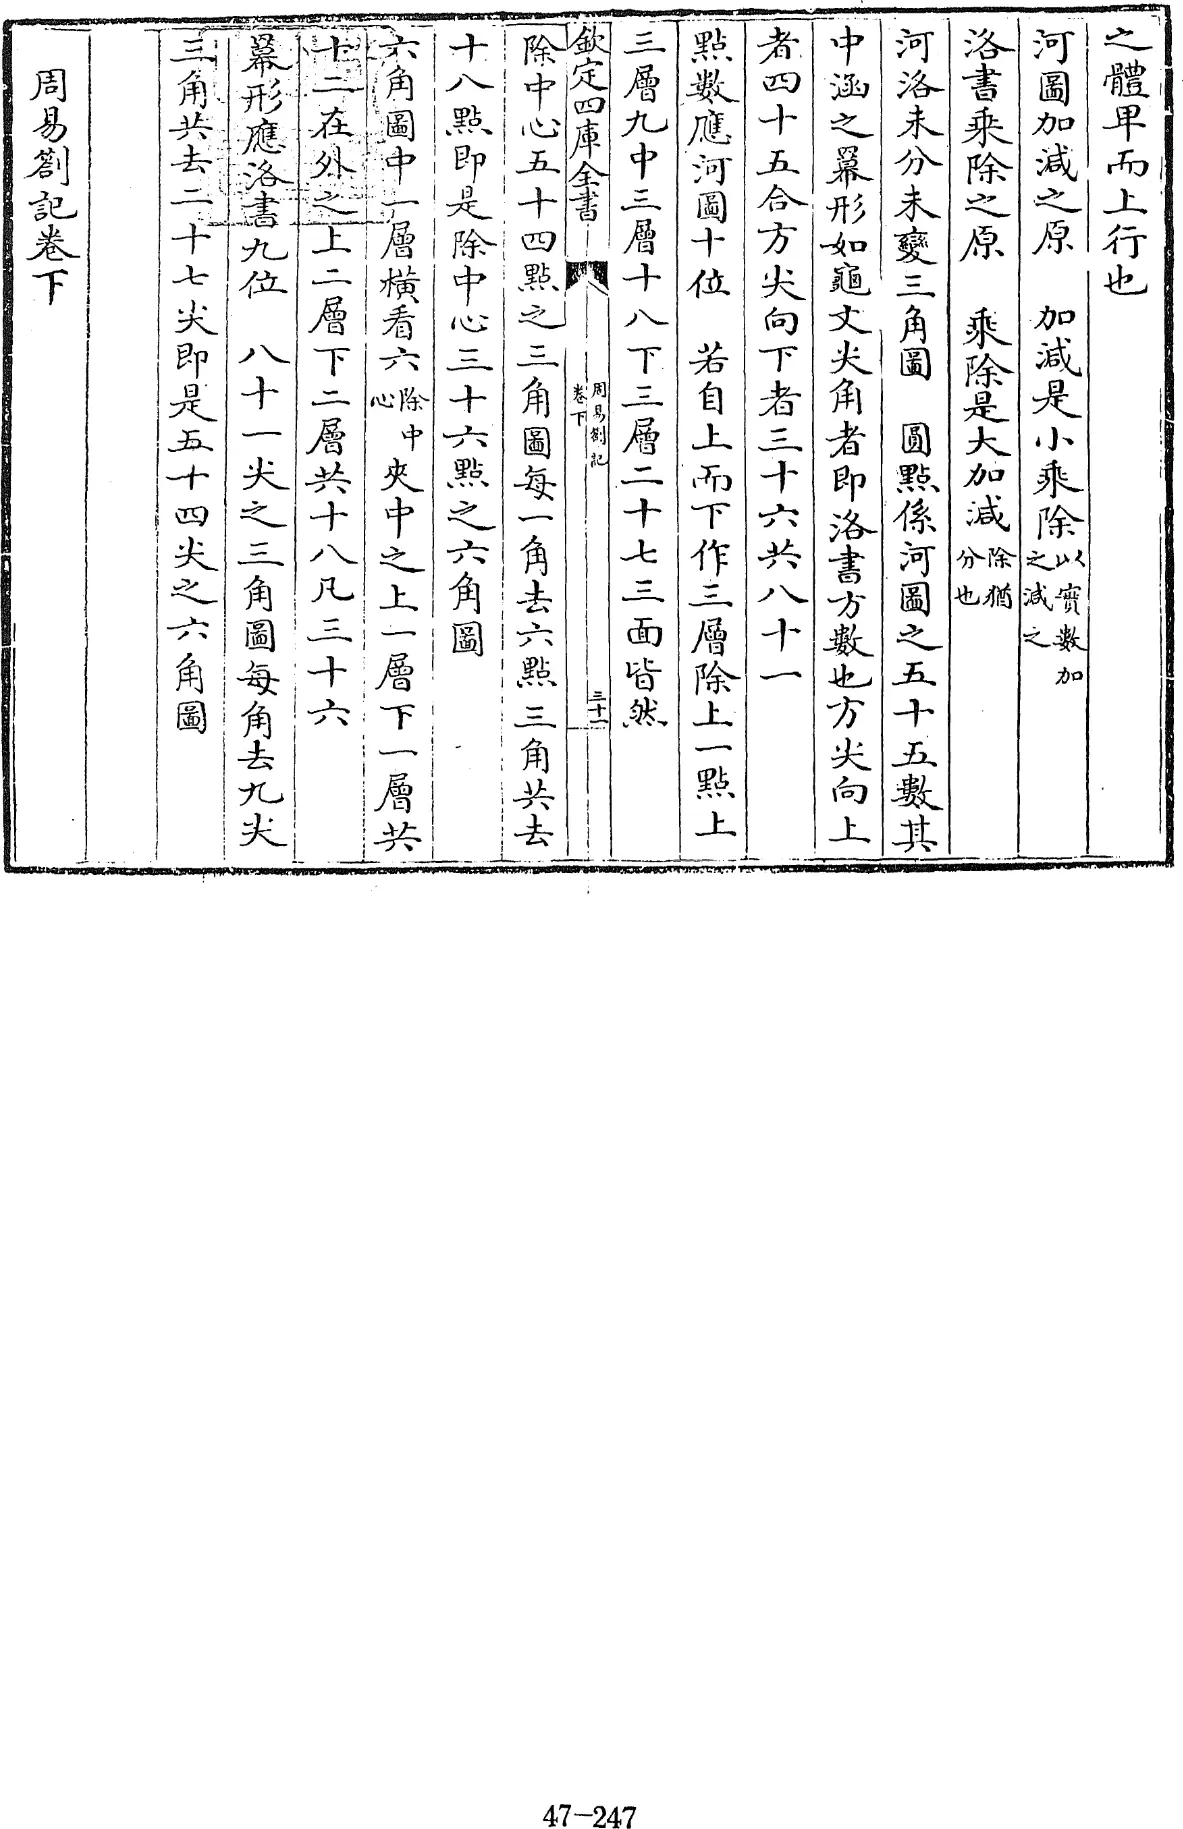 之體卑而上行也
河圖加減之原　加減是小乘除以實數加之減之
洛書乘除之原　乘除是大加減除猶分也
河洛未分未變三角圖　圓點係河圖之五十五數其
中涵之冪形如龜文尖角者即洛書方數也方尖向上
者四十五合方尖向下者三十六共八十一
點數應河圖十位　若自上而下作三層除上一點上
三層九中三層十八下三層二十七三面皆然
欽定四庫全書
周易劄記
卷下
三十二
除中心五十四點之三角圖每一角去六點三角共去
十八點即是除中心三十六點之六角圖
六角圖中一層橫看六除中心夾中之上一層下一層共
十二在外之上二層下二層共十八凡三十六
冪形應洛書九位　八十一尖之三角圖每角去九尖
三角共去二十七尖即是五十四尖之六角圖
周易劄記卷下
47-247